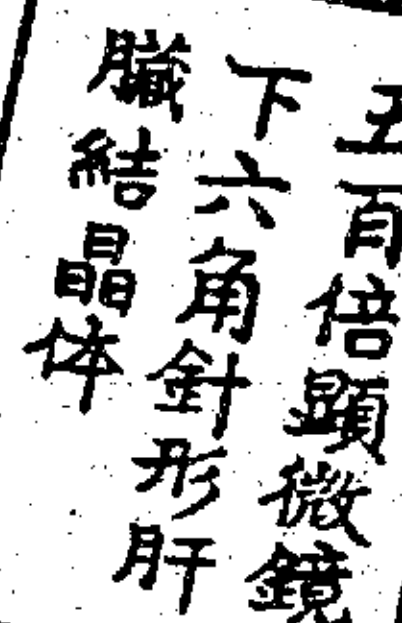 五百倍顕微鏡
下六角針形肝
臓結晶体